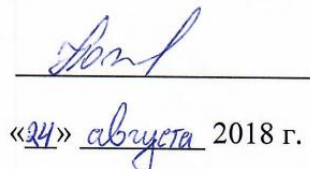 «24» августа 2018 г.